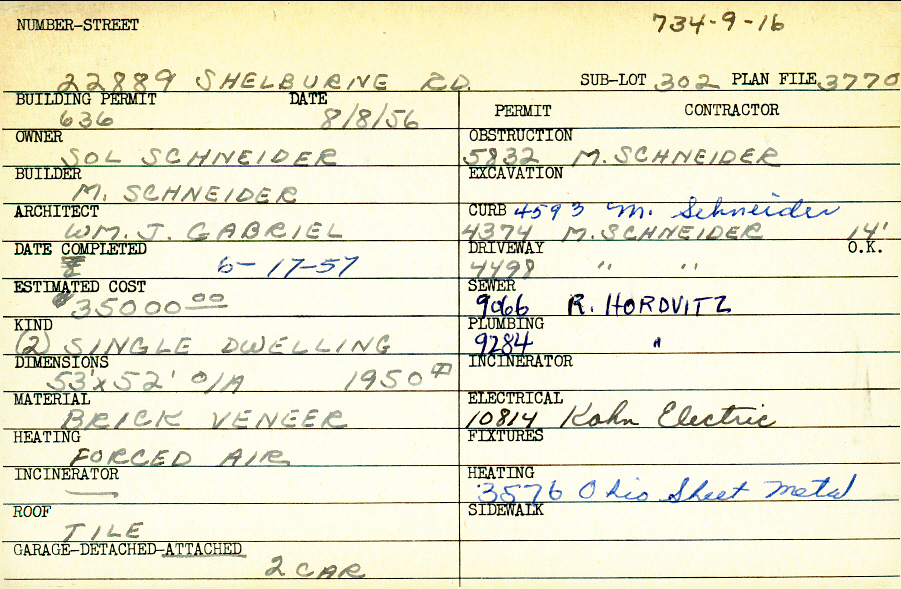 NUMBER-STREET 734-9-16
22889 SHELBURNE RD. SUB-LOT 302 PLAN FILE 3770
BUILDING PERMIT DATE PERMIT CONTRACTOR
636 8/8/56
OWNER OBSTRUCTION
SOL SCHNEIDER 5832 M. SCHNEIDER
BUILDER EXCAVATION
M. SCHNEIDER
ARCHITECT CURB 4593 M. Schneider
WM. J. GABRIEL 4374 M. SCHNEIDER 14'
DATE COMPLETED DRIVEWAY O.K.
6-17-57 4498 " "
ESTIMATED COST SEWER
$35000.00 9066 R. HOROVITZ
KIND PLUMBING
(2) SINGLE DWELLING 9284 "
DIMENSIONS INCINERATOR
53' x 52' O/A 1950
MATERIAL ELECTRICAL
BRICK VENEER 10814 Kohn Electric
HEATING FIXTURES
FORCED AIR
INCINERATOR HEATING
— 3576 Ohio Sheet Metal
ROOF SIDEWALK
TILE
GARAGE-DETACHED-ATTACHED
2 CAR